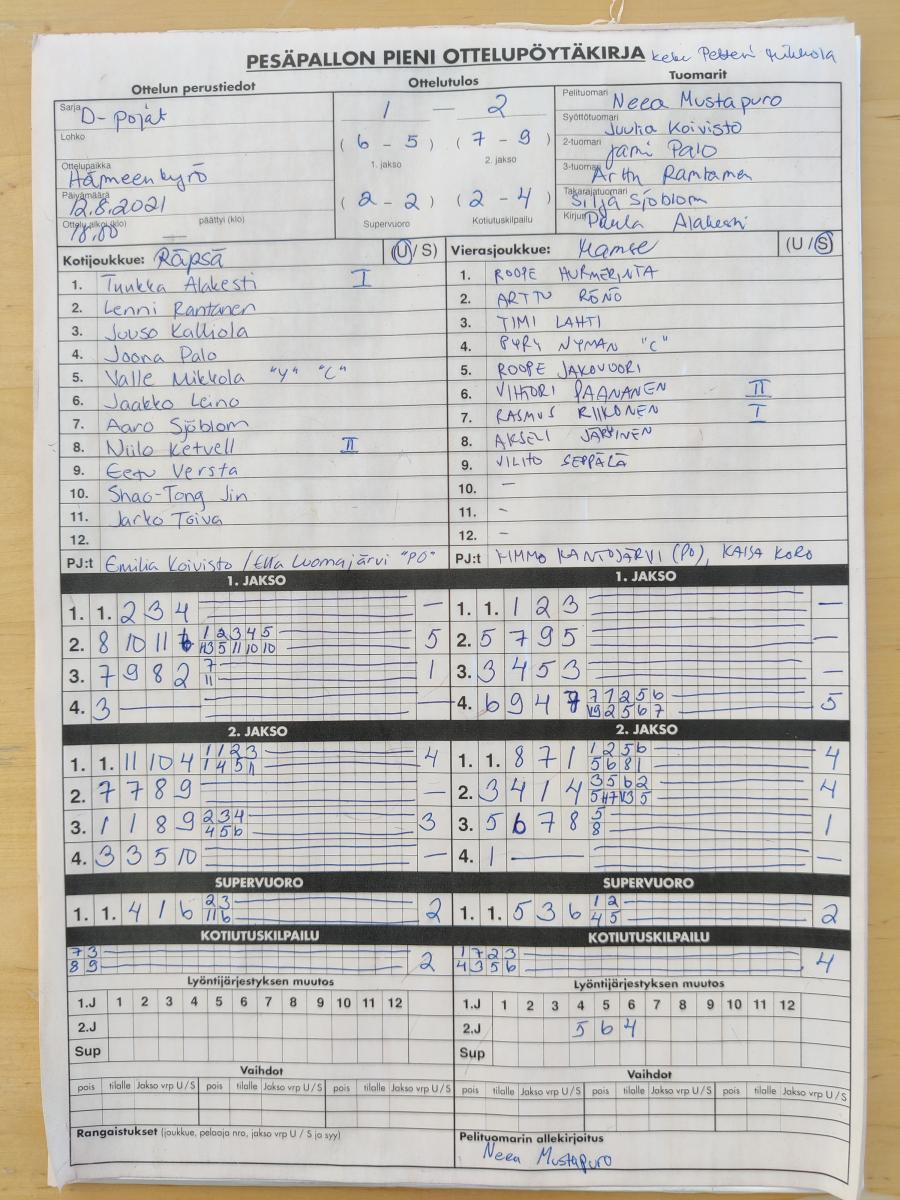 PESÄPALLON PIENI OTTELUPÖYTÄKIRJA
Ottelun perustiedot Ottelutulos Tuomarit
Sarja D-pojat
Lohko
Ottelupaikka Hämeenkyrö
Päivämäärä 12.8.2021
Ottelu alkoi (klo) 18.00 päättyi (klo) —
1 — 2
( 6 - 5 ) ( 7 - 9 )
1. jakso 2. jakso
( 2 - 2 ) ( 2 - 4 )
Supervuoro Kotiutuskilpailu
Pelituomari Neea Mustapuro
Syöttötuomari Juulia Koivisto
2-tuomari Jami Palo
3-tuomari Arttu Rantama
Takarajatuomari Silja Sjöblom
Kirjuri Alakesti
Kotijoukkue: Räpsä (U/S)
1. Tuukka Alakesti I
2. Lenni Rantanen
3. Juuso Kalliola
4. Joona Palo
5. Valle Mikkola "Y" "C"
6. Jaakko Leino
7. Aaro Sjöblom
8. Niilo Ketvell II
9. Eetu Versta
10. Shao-Tong Jin
11. Jarko Toiva
12.
PJ:t Emilia Koivisto / Ella Luomajärvi "PO"
Vierasjoukkue: Mamse (U/S)
1. ROOPE HURMERINTA
2. ARTTU RÖNÖ
3. TIMI LAHTI
4. PYRY NYMAN "C"
5. ROOPE JAKOVUORI
6. VIHTORI PAANANEN II
7. RASMUS RIIKONEN I
8. AKSELI JÄRVINEN
9. VILHO SEPPÄLÄ
10. —
11. -
12. -
PJ:t KIMMO KANTOJÄRVI (PO), KAISA KORO
1. JAKSO
1. 1. 2 3 4 —
2. 8 10 11 6 1 2 3 4 5 5
3 5 11 10 10
3. 7 9 8 2 7 1
11
4. 3 — —
1. JAKSO
1. 1. 1 2 3 —
2. 5 7 9 5 —
3. 3 4 5 3 —
4. 6 9 4 7 7 1 2 5 6 5
9 2 5 6 7
2. JAKSO
1. 1. 11 10 4 1 1 2 3 4
1 4 5 11
2. 7 7 8 9 —
3. 1 1 8 9 2 3 4 3
4 5 6
4. 3 3 5 10 —
2. JAKSO
1. 1. 8 7 1 1 2 5 6 4
5 6 8 1
2. 3 4 1 4 3 5 6 2 4
3. 5 6 7 8 5 1
8
4. 1 — —
SUPERVUORO
1. 1. 4 1 6 2 3 2
11 6
SUPERVUORO
1. 1. 5 3 6 1 2 2
4 5
KOTIUTUSKILPAILU
7 3 2
8 9
KOTIUTUSKILPAILU
1 7 2 3 4
4 3 5 6
Lyöntijärjestyksen muutos
1.J 1 2 3 4 5 6 7 8 9 10 11 12
2.J
Sup
Lyöntijärjestyksen muutos
1.J 1 2 3 4 5 6 7 8 9 10 11 12
2.J 5 6 4
Sup
Vaihdot
pois tilalle Jakso vrp U / S pois tilalle Jakso vrp U / S pois tilalle Jakso vrp U / S
Vaihdot
pois tilalle Jakso vrp U / S pois tilalle Jakso vrp U / S pois tilalle Jakso vrp U / S
Rangaistukset (joukkue, pelaaja nro, jakso vrp U / S ja syy)
Pelituomarin allekirjoitus
Neea Mustapuro